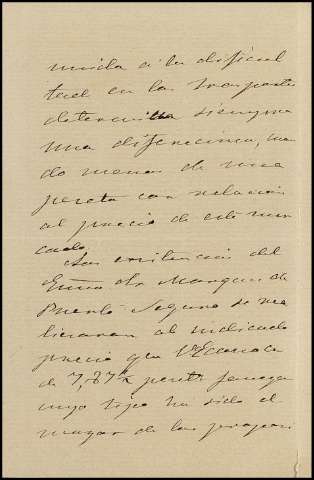 unida á la dificul
tad en los trasportes
determina siempre
una diferencia, cuan
do menos de una
peseta con relación
al precio de este mer
cado.
Las existencias del
Exmo Sr Marques de
Puerto Seguro se rea
lizaran al indicado
precio que V conoce
de 7,87½ pents fanega
cuyo tipo ha sido el
mayor de los propor